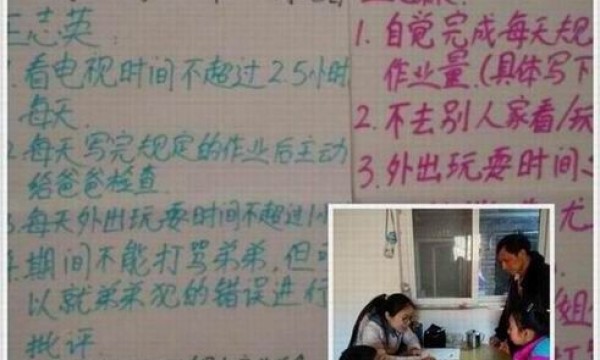 王志英:
1. 看电视时间不超过2.5小时
每天.
2. 每天写完规定的作业后主动
给爸爸检查
3. 每天外出玩耍时间不超过1小
4. 期间不能打骂弟弟,但可
以就弟弟犯的错误进行
批评
1. 自觉完成每天规
作业量.(具体写下
2. 不去别人家看/玩
3. 外出玩耍时间不
尤
姐